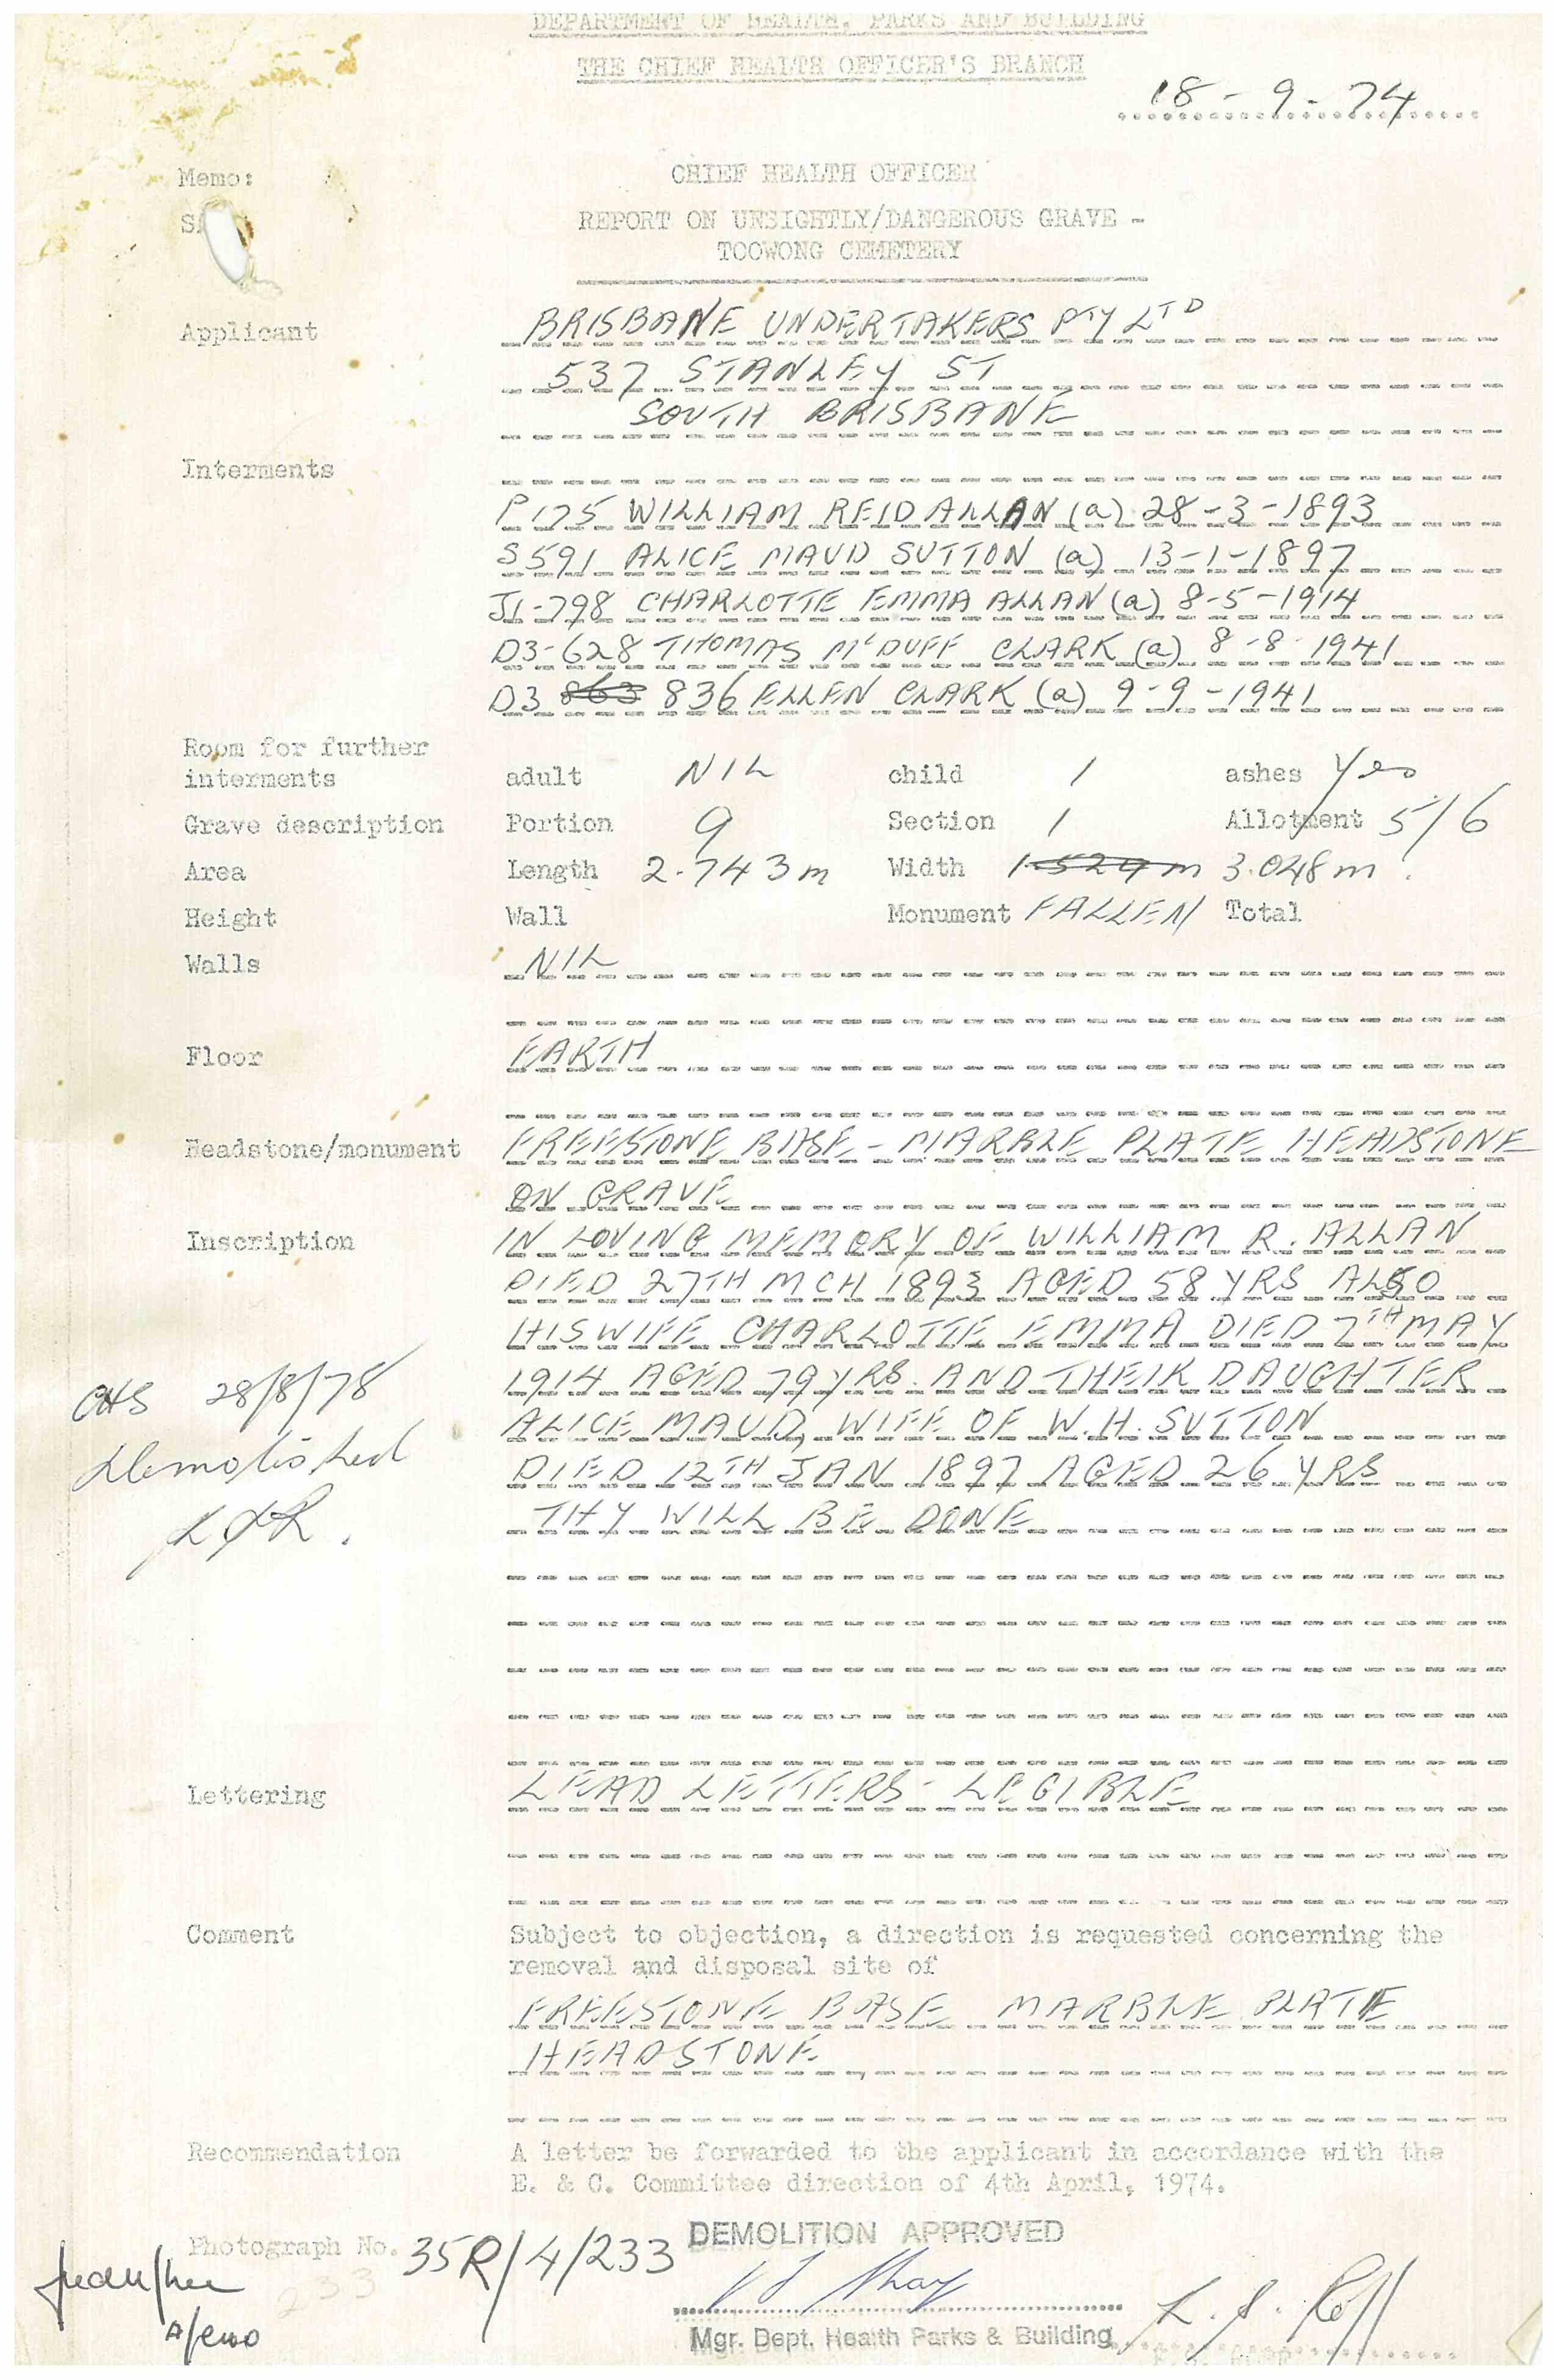 DEPARTMENT OF HEALTH, PARKS AND BUILDING
THE CHIEF HEALTH OFFICER'S BRANCH
18-9-74
Memo: CHIEF HEALTH OFFICER
REPORT ON UNSIGHTLY/DANGEROUS GRAVE -
TOOWONG CEMETERY
Applicant BRISBANE UNDERTAKERS PTY LTD
537 STANLEY ST
SOUTH BRISBANE
Interments
P175 WILLIAM REID ALLAN (a) 28-3-1893
S591 ALICE MAUD SUTTON (a) 13-1-1897
J1-798 CHARLOTTE EMMA ALLAN (a) 8-5-1914
D3-628 THOMAS McDUFF CLARK (a) 8-8-1941
D3 863 836 ELLEN CLARK (a) 9-9-1941
Room for further
interments adult NIL child 1 ashes Yes
Grave description Portion 9 Section 1 Allotment 5/6
Area Length 2.743m Width 1.524m 3.048m.
Height Wall Monument FALLEN Total
Walls NIL
Floor EARTH
Headstone/monument FREESTONE BASE - MARBLE PLATE HEADSTONE
ON GRAVE
Inscription IN LOVING MEMORY OF WILLIAM R. ALLAN
DIED 27TH MCH 1893 AGED 58 YRS ALSO
HIS WIFE CHARLOTTE EMMA DIED 7TH MAY
1914 AGED 79 YRS. AND THEIR DAUGHTER
ALICE MAUD, WIFE OF W.H. SUTTON
DIED 12TH JAN 1897 AGED 26 YRS
THY WILL BE DONE
28/8/78
Demolished
Lettering LEAD LETTERS - LEGIBLE
Comment Subject to objection, a direction is requested concerning the
removal and disposal site of
FREESTONE BASE MARBLE PLATE
HEADSTONE
Recommendation A letter be forwarded to the applicant in accordance with the
E. & C. Committee direction of 4th April, 1974.
Photograph No. 35R/4/233
233
DEMOLITION APPROVED
Mgr. Dept. Health Parks & Building